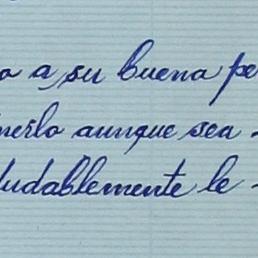 o a su buena pe
nerlo aunque sea
ludablemente le